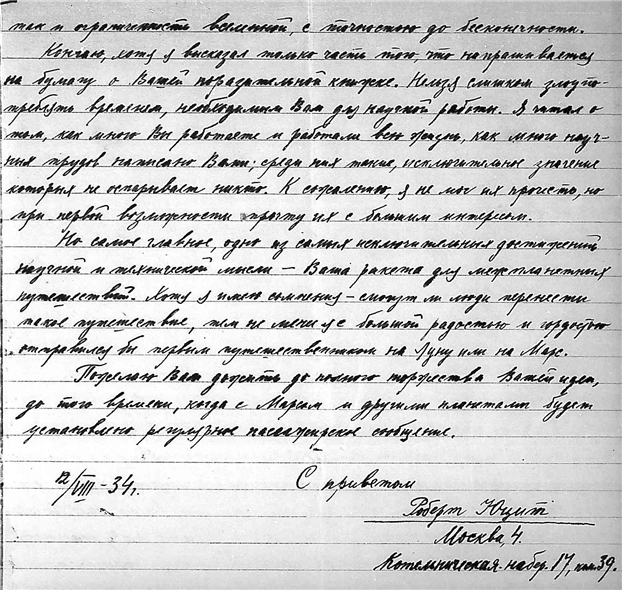 так и ограниченность вселенной, с точностью до бесконечности.
Кончаю, хотя я высказал только часть того, что напрашивается
на бумагу о Вашей поразительной книжке. Нельзя слишком злоупо-
треблять временем, необходимым Вам для научной работы. Я читал о
том, как много Вы работаете и работали всю жизнь, как много науч-
ных трудов написано Вами; среди них такие, исключительное значение
которых не оспаривает никто. К сожалению, я не мог их прочесть, но
при первой возможности прочту их с большим интересом.
Но самое главное, одно из самых исключительных достижений
научной и технической мысли – Ваша ракета для межпланетных
путешествий. Хотя я имею сомнения – смогут ли люди перенести
такое путешествие, тем не менее я с большой радостью и гордостью
отправился бы первым путешественником на Луну или на Марс.
Пожелаю Вам дожить до полного торжества Вашей идеи,
до того времени, когда с Марсом и другими планетами будет
установлено регулярное пассажирское сообщение.
12/VIII-34г. С приветом
Роберт
Москва, 4.
Котельническая набер. 17, кв. 39.